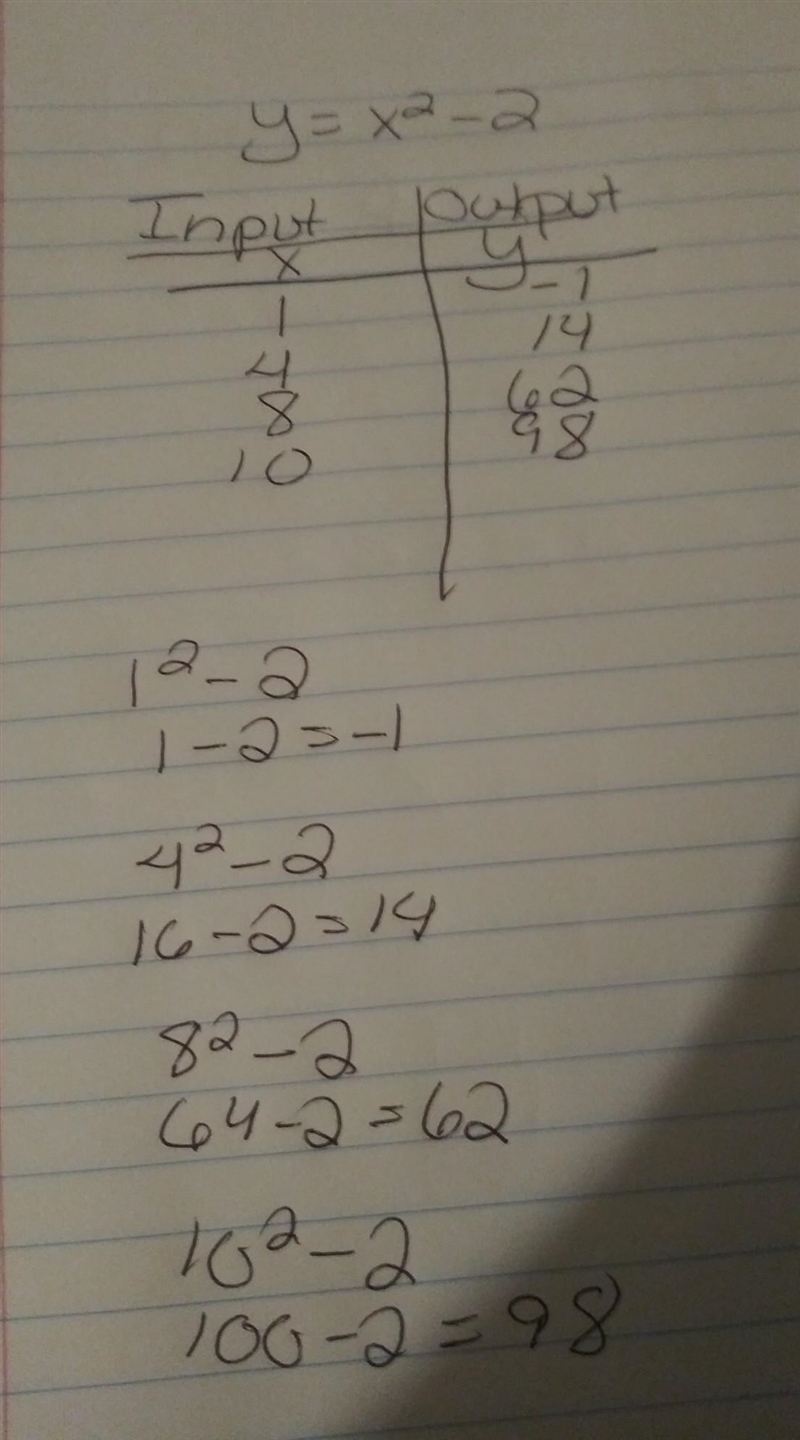 y = x² - 2
Input Output
x y
1 -1
4 14
8 62
10 98
1² - 2
1 - 2 = -1
4² - 2
16 - 2 = 14
8² - 2
64 - 2 = 62
10² - 2
100 - 2 = 98